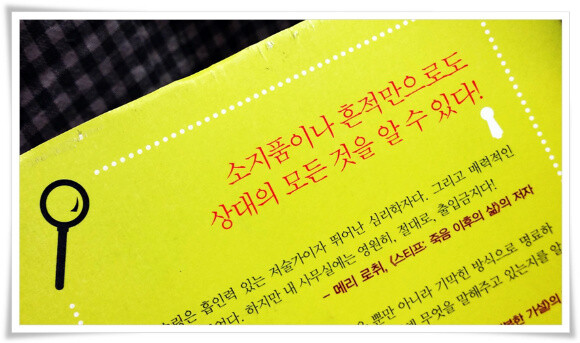 소지품이나 흔적만으로도
상대의 모든 것을 알 수 있다!
흡인력 있는 저술가이자 뛰어난 심리학자다. 그리고 매력적인
하지만 내 사무실에는 영원히, 절대로, 출입금지다!
- 메리 로취, 〈스티프: 죽음 이후의 삶〉의 저자
뿐만 아니라 기막힌 방식으로 명료하
무엇을 말해주고 있는지를 알
가설〉의